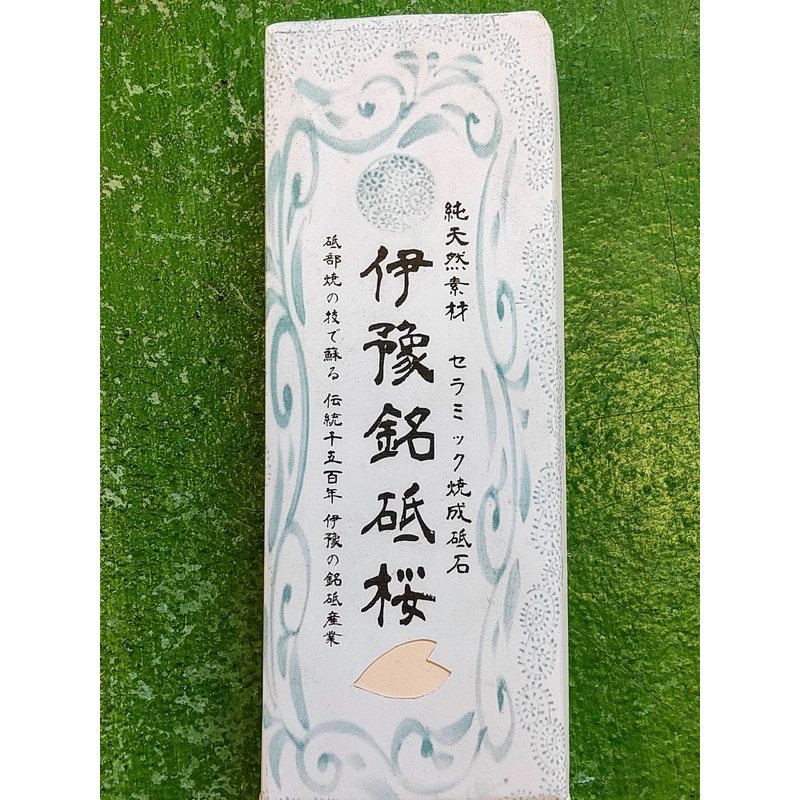 純天然素材 セラミック焼成砥石
伊豫銘砥桜
砥部焼の技で蘇る 伝統千五百年 伊豫の銘砥産業